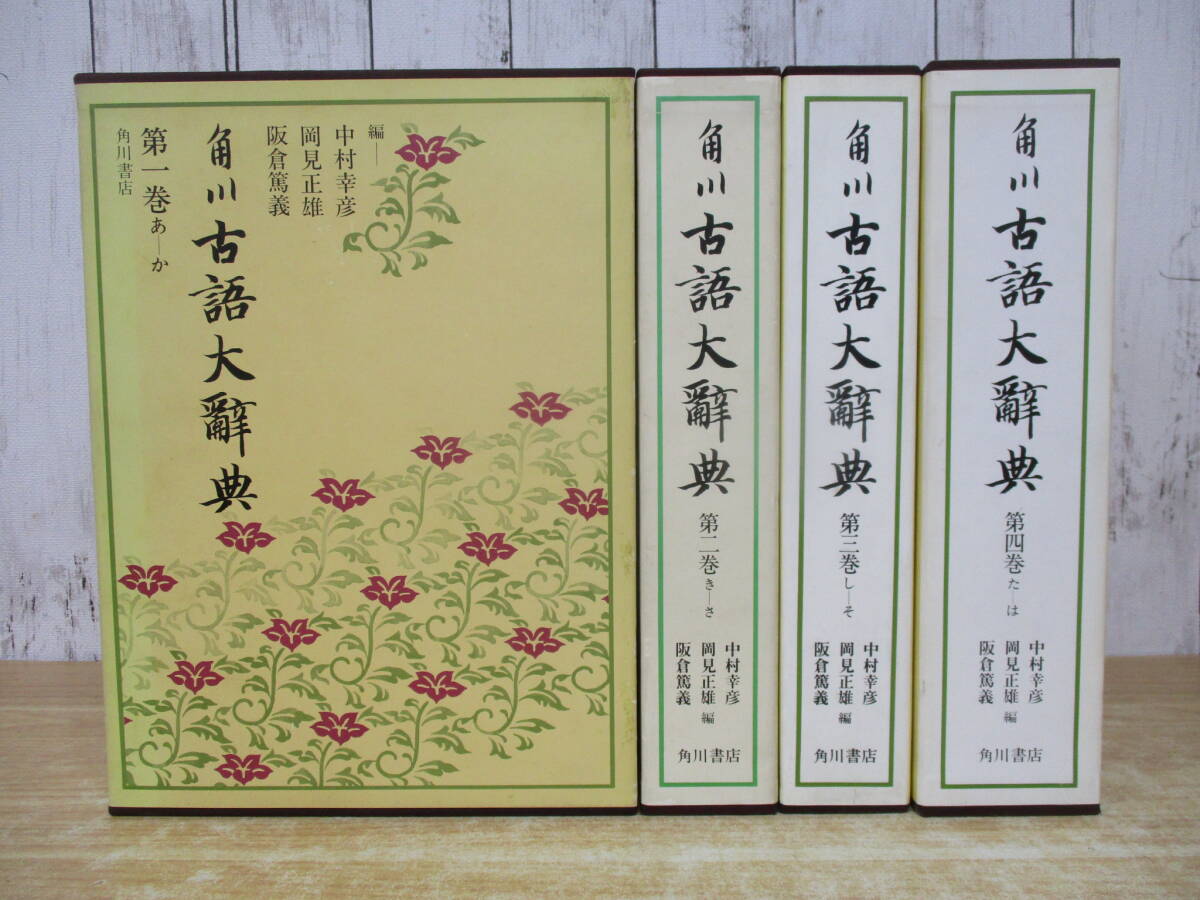 編―
中村幸彦
岡見正雄
阪倉篤義
角川古語大辭典
第一巻 あ―か
角川書店
角川古語大辭典
第二巻 き―さ
中村幸彦
岡見正雄 編
阪倉篤義
角川書店
角川古語大辭典
第三巻 し―そ
中村幸彦
岡見正雄 編
阪倉篤義
角川書店
角川古語大辭典
第四巻 た―は
中村幸彦
岡見正雄 編
阪倉篤義
角川書店